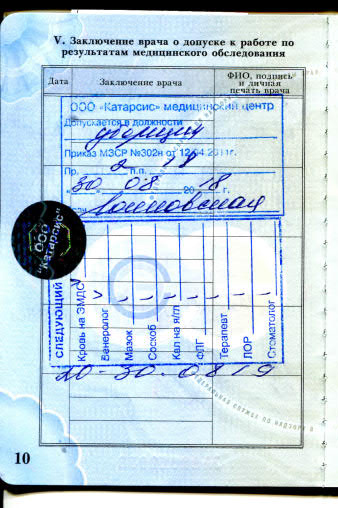 V. Заключение врача о допуске к работе по
результатам медицинского обследования
Дата
Заключение врача
ФИО, подпись
и личная
печать врача
ООО «Катарсис» медицинский центр
Допускается в должности
Приказ МЗСР №302н от 12.04.2011г.
Пр. 2 п.п. 18
30 08 2018 г.
ООО
"Катарсис"
СЛЕДУЮЩИЙ
Кровь на ЭМДС V
Венеролог V
Мазок
Соскоб
Кал на я/гл
ФЛГ
Терапевт
ЛОР
Стоматолог
20-30.08.19
ФЕДЕРАЛЬНАЯ СЛУЖБА ПО НАДЗОРУ В
10